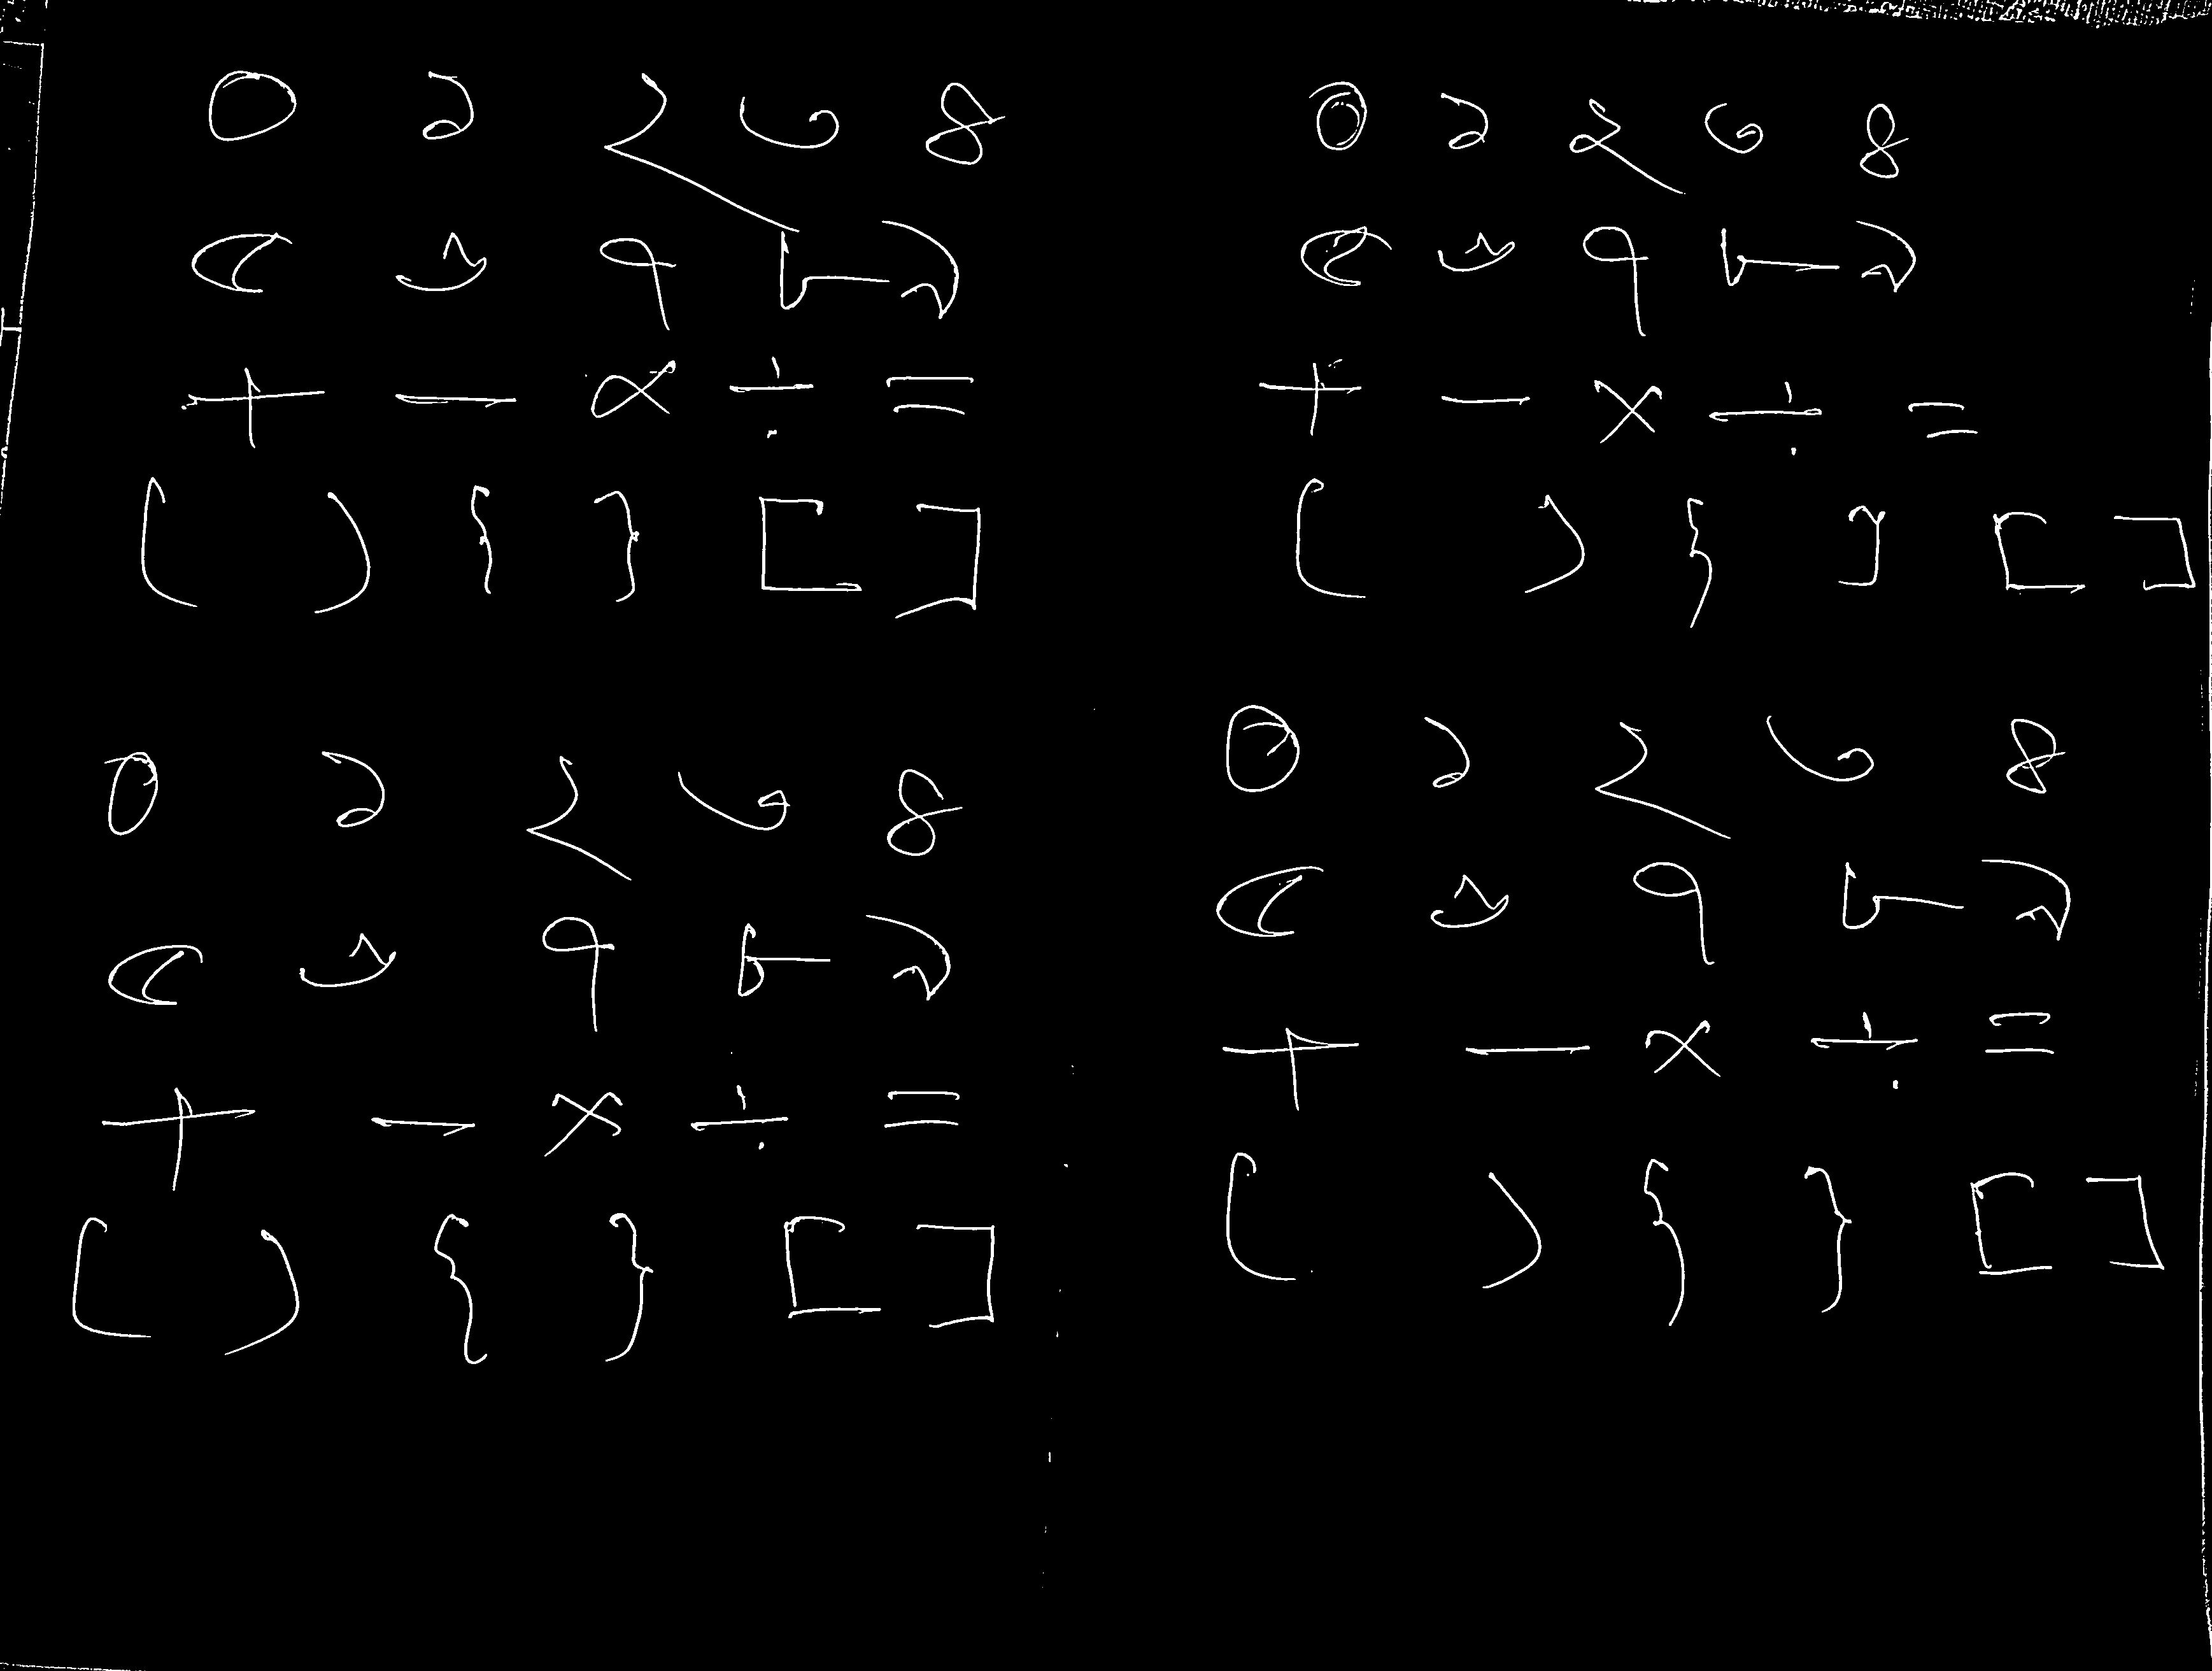 ০ ১ ২ ৩ ৪
৫ ৬ ৭ ৮ ৯
+ - × ÷ =
( ) { } [ ]
০ ১ ২ ৩ ৪
৫ ৬ ৭ ৮ ৯
+ - × ÷ =
( ) { } [ ]
০ ১ ২ ৩ ৪
৫ ৬ ৭ ৮ ৯
+ - × ÷ =
( ) { } [ ]
০ ১ ২ ৩ ৪
৫ ৬ ৭ ৮ ৯
+ - × ÷ =
( ) { } [ ]